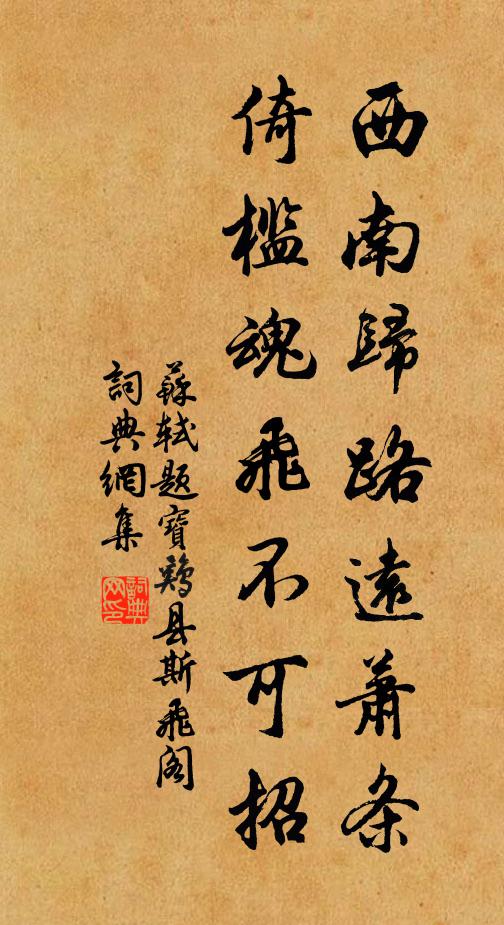 西南歸路遠蕭条
倚檻魂飛不可招
蘇軾題寶鷄县斯飛阁
詞典網集
詞典网印